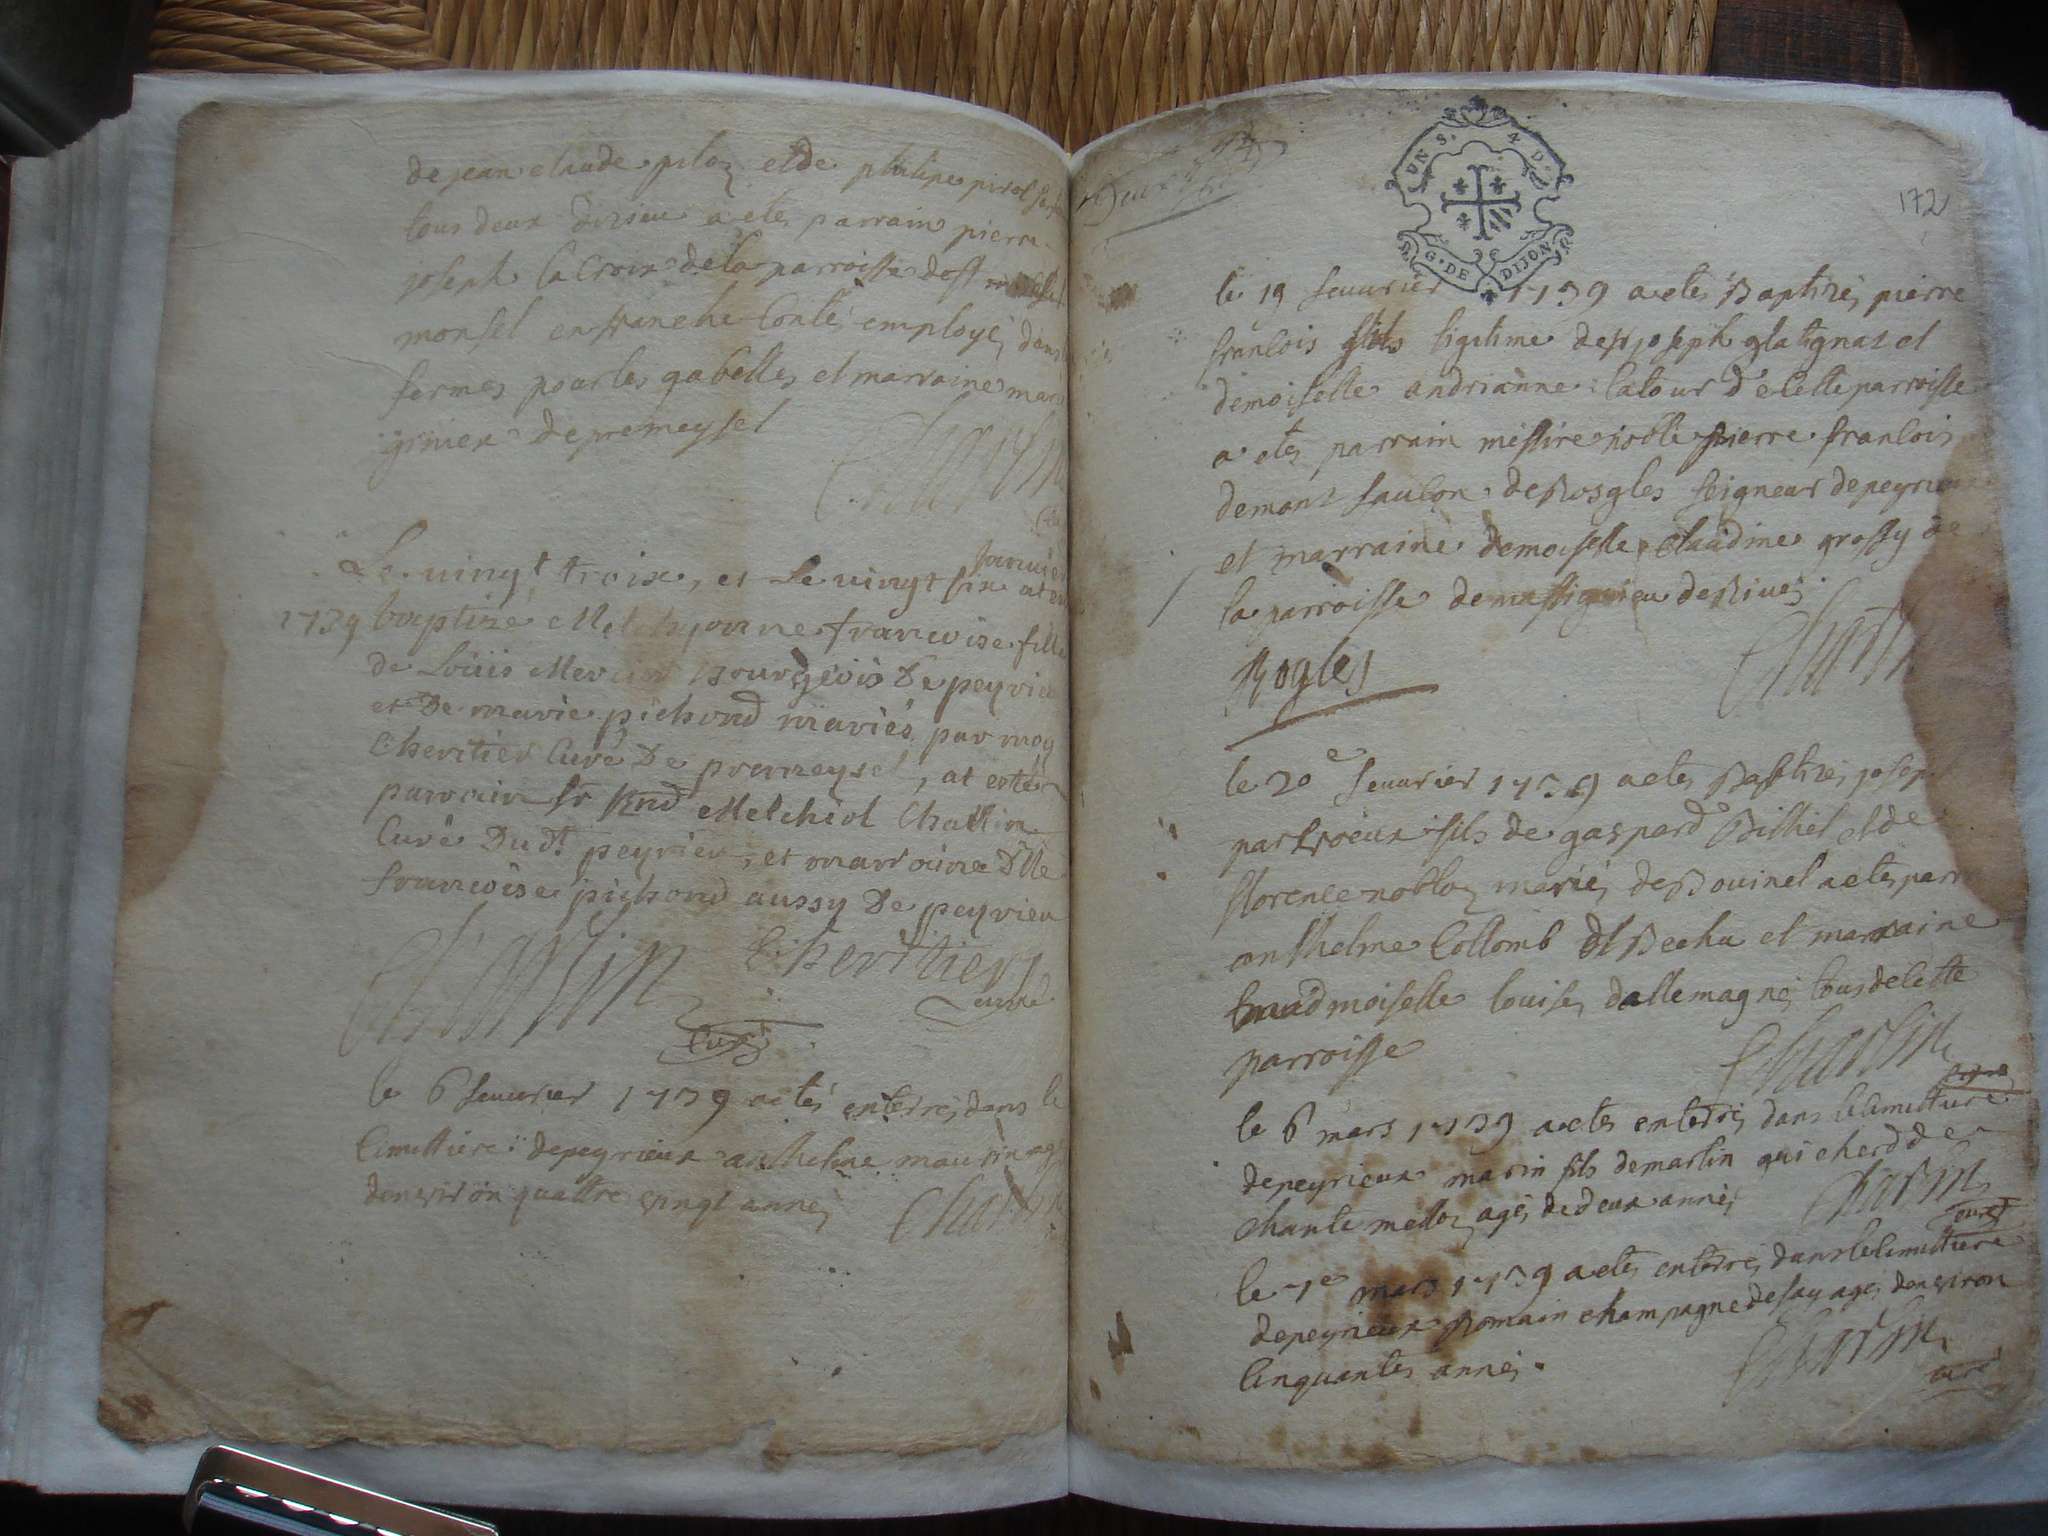 de jean claude piloz et de philipe pirol
tous deux dizieu a ete parrain pierre
joseph la Croix de la parroisse dost
monsel en franche Conté employé dans
fermes pour les gabelles et marraine marie
ginier de premeysel
Charlin
Janvier
Le vingt troix, et Le vingt six at eté
1739 baptizé Melchyonne francoise fille
de Loüis Mercier Bourgeois De peyrieu
et De marie pichond mariés par moy
Cheritier Curé De premeysel, at esté
parrain Sr Rnd Melchiol Charlin
Curé Dudt peyrieu, et marraine Dlle
francoise pichond aussy De peyrieu
Charlin Cheritier
Curé curé
le 6 feuurier 1739 a eté enterré dans le
Cimettiere depeyrieux anthelme maurin agé
denviron quattre vingt année
Charlin
172
UN S. 4 D.
G. DE DIJON
le 19 feuurier 1739 a eté Baptizé pierre
francois fils ligitime de sr joseph glatignat et
demoiselle andrianne Latour de cette parroisse
a eté parrain messire noble pierre francois
demont faulcon de Rogles seigneur depeyrieux
et marraine demoiselle Claudine grossy de
la parroisse de massignieu de Rives
Rogles
Charlin
le 20e feuurier 1739 a eté Baptizé joseph
par Croeux fils de gaspard Billiet et de
florence nobloz mariés de Bouinel a eté parrain
anthelme Collomb de Becha et marraine
madmoiselle louise dallemagne tous de cette
parroisse
Charlin
curé
le 6 mars 1739 a eté enterré dans le Cimettiere
depeyrieux marin fils de martin qui cherdder
chante melloz agé de deux année
Charlin
curé
le 7e mars 1739 a eté enterré dans le Cimettiere
depeyrieux Romain champagne de fay agé denviron
Cinquante année.
Charlin
curé